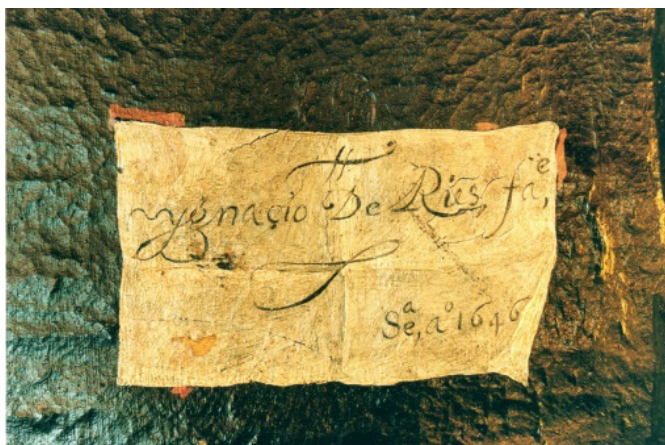 Ygnaçio De Ries, faᵉ,
Seª, aº 1646